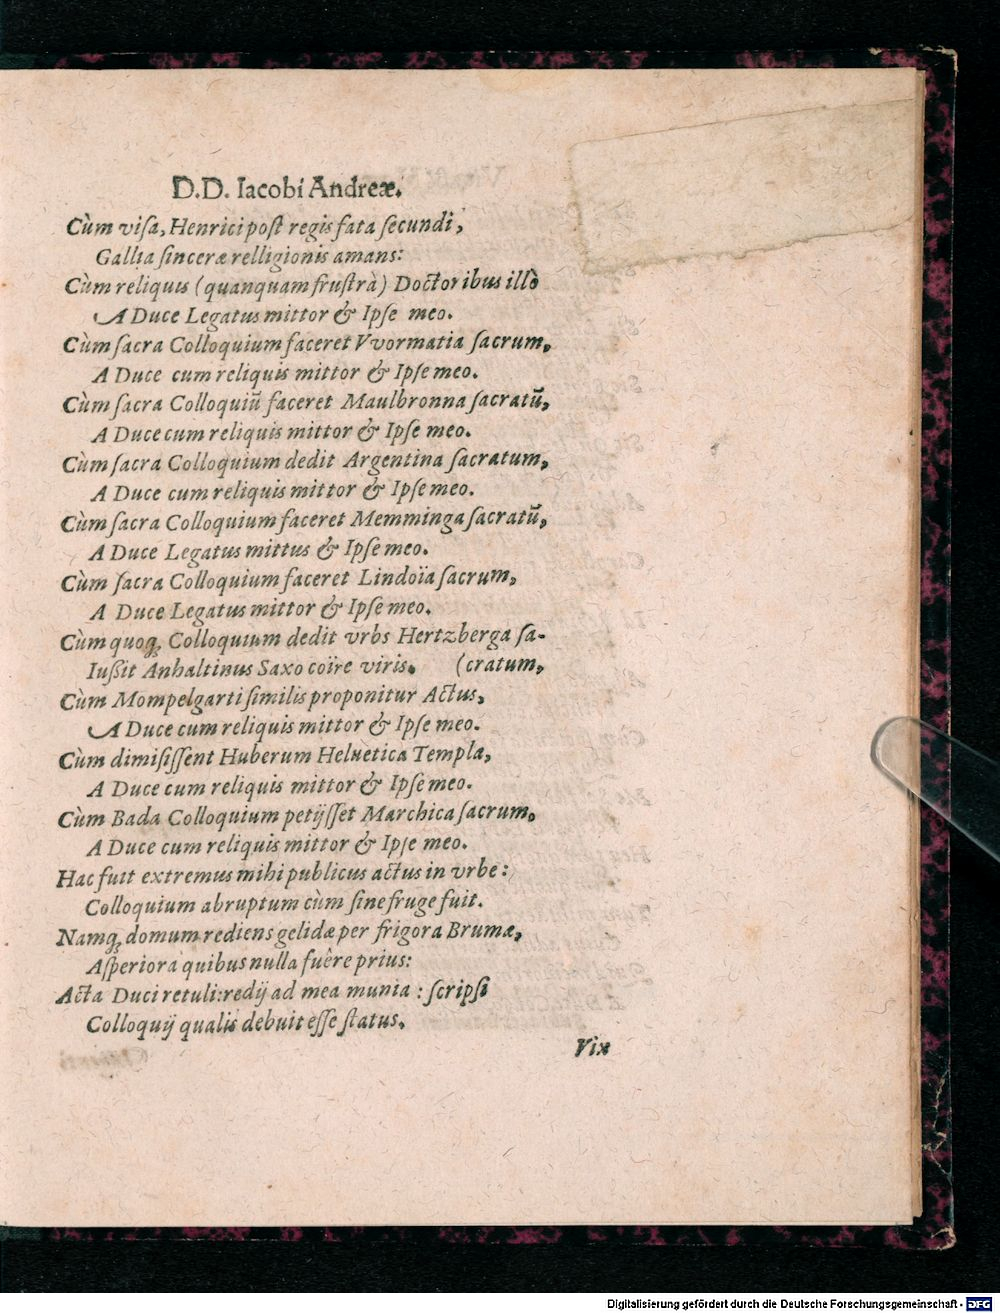 D.D. Iacobi Andreæ.
Cùm visa, Henrici post regis fata secundi,
Gallia sinceræ relligionis amans:
Cùm reliquis (quanquam frustrà) Doctoribus illò
A Duce Legatus mittor & Ipse meo.
Cùm sacra Colloquium faceret Vvormatia sacrum,
A Duce cum reliquis mittor & Ipse meo.
Cùm sacra Colloquiũ faceret Maulbronna sacratũ,
A Duce cum reliquis mittor & Ipse meo.
Cùm sacra Colloquium dedit Argentina sacratum,
A Duce cum reliquis mittor & Ipse meo.
Cùm sacra Colloquium faceret Memminga sacratũ,
A Duce Legatus mittus & Ipse meo.
Cùm sacra Colloquium faceret Lindoïa sacrum,
A Duce Legatus mittor & Ipse meo.
Cùm quoq; Colloquium dedit vrbs Hertzberga sa-
Iußit Anhaltinus Saxo coïre viris. (cratum,
Cùm Mompelgarti similis proponitur Actus,
A Duce cum reliquis mittor & Ipse meo.
Cùm dimisissent Huberum Heluetica Templa,
A Duce cum reliquis mittor & Ipse meo.
Cùm Bada Colloquium petijsset Marchica sacrum,
A Duce cum reliquis mittor & Ipse meo.
Hac fuit extremus mihi publicus actus in vrbe:
Colloquium abruptum cùm sine fruge fuit.
Namq; domum rediens gelidæ per frigora Brumæ,
Asperiora quibus nulla fuêre prius:
Acta Duci retuli: redij ad mea munia: scripsi
Colloquij qualis debuit esse status.
Vix
Digitalisierung gefördert durch die Deutsche Forschungsgemeinschaft - DFG